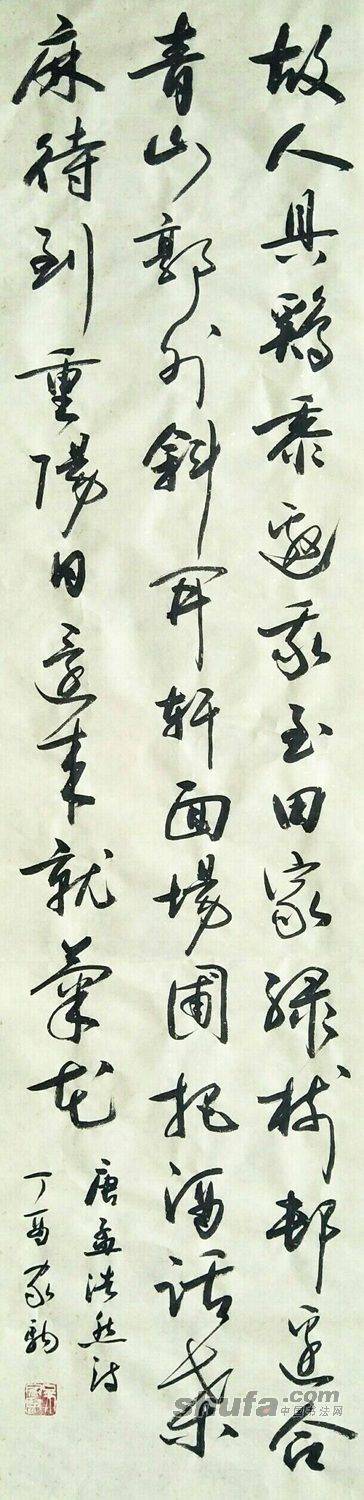 故人具鷄黍邀我至田家绿樹邨邊合
青山郭外斜开軒面場圃把酒話桑
麻待到重陽日還来就菊花
唐孟浩然诗
丁酉家驹
shufa.com
中国书法网